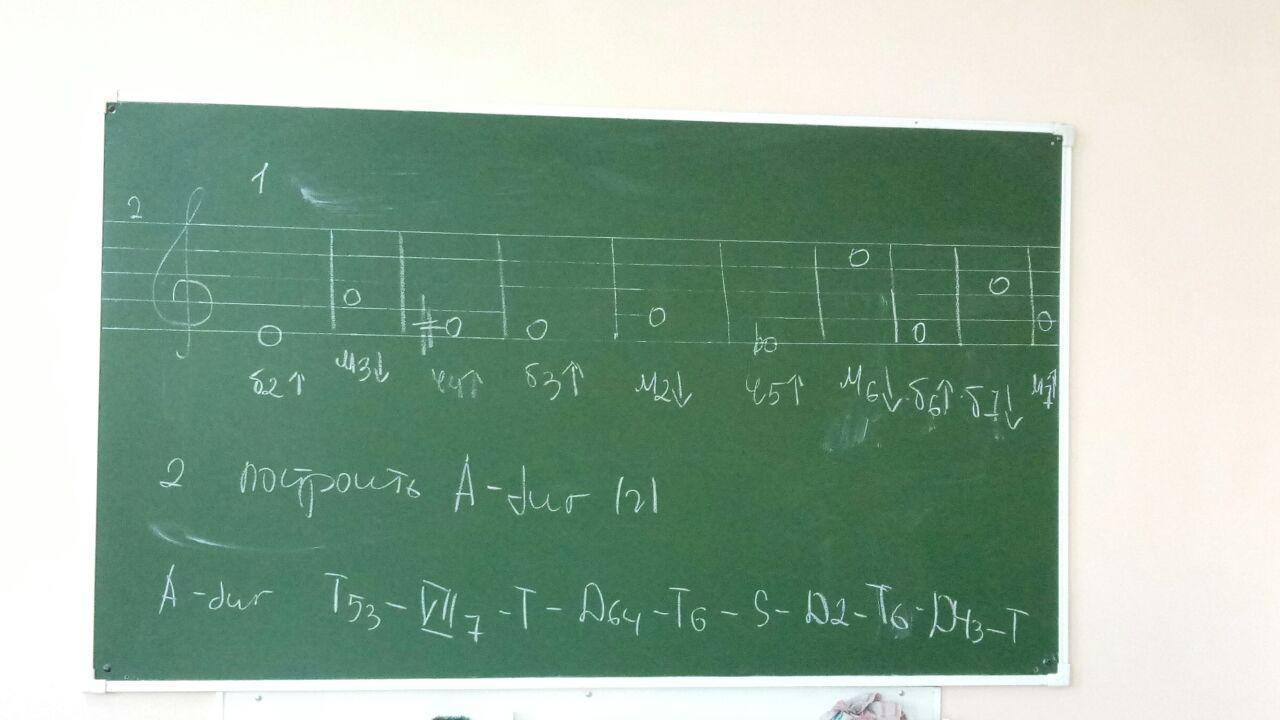 1
2
б2↑ м3↓ ч4↑ б3↑ м2↓ ч5↑ м6↓ б6↑ б7↓ м7↑
2 построить A-dur (2)
A-dur T53 - VII7 - T - D64 - T6 - S - D2 - T6 - D43 - T